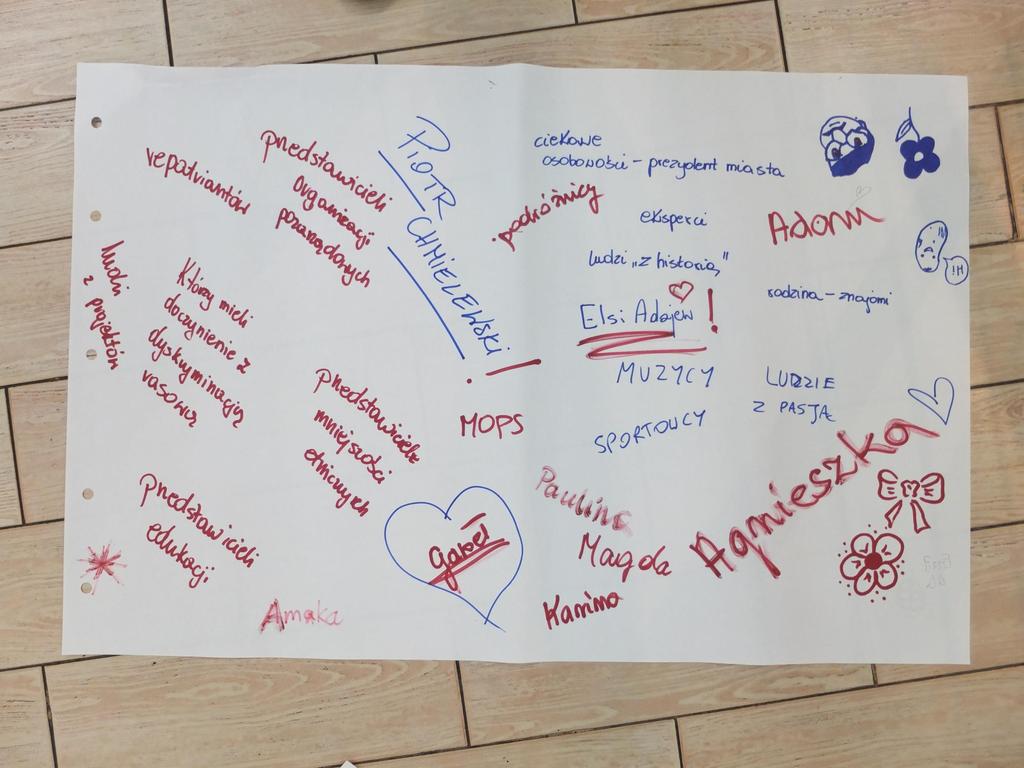 repatriantów
przedstawicieli
organizacji
pozarządowych
ludzi
z projektów
Którzy mieli
do czynienie z
dyskryminacją
rasową
przedstawiciele
mniejszości
etnicznych
przedstawicieli
edukacji
Amaka
PIOTR
CHMIELEWSKI!
MOPS
Gabet
ciekawe
osobowości - prezydent miasta
podróżnicy
eksperci
ludzi „z historią"
Elsi Adajew !
MUZYCY
SPORTOWCY
Adam
HI!
rodzina - znajomi
LUDZIE
Z PASJĄ
Paulina
Magda
Kanima
Agnieszka